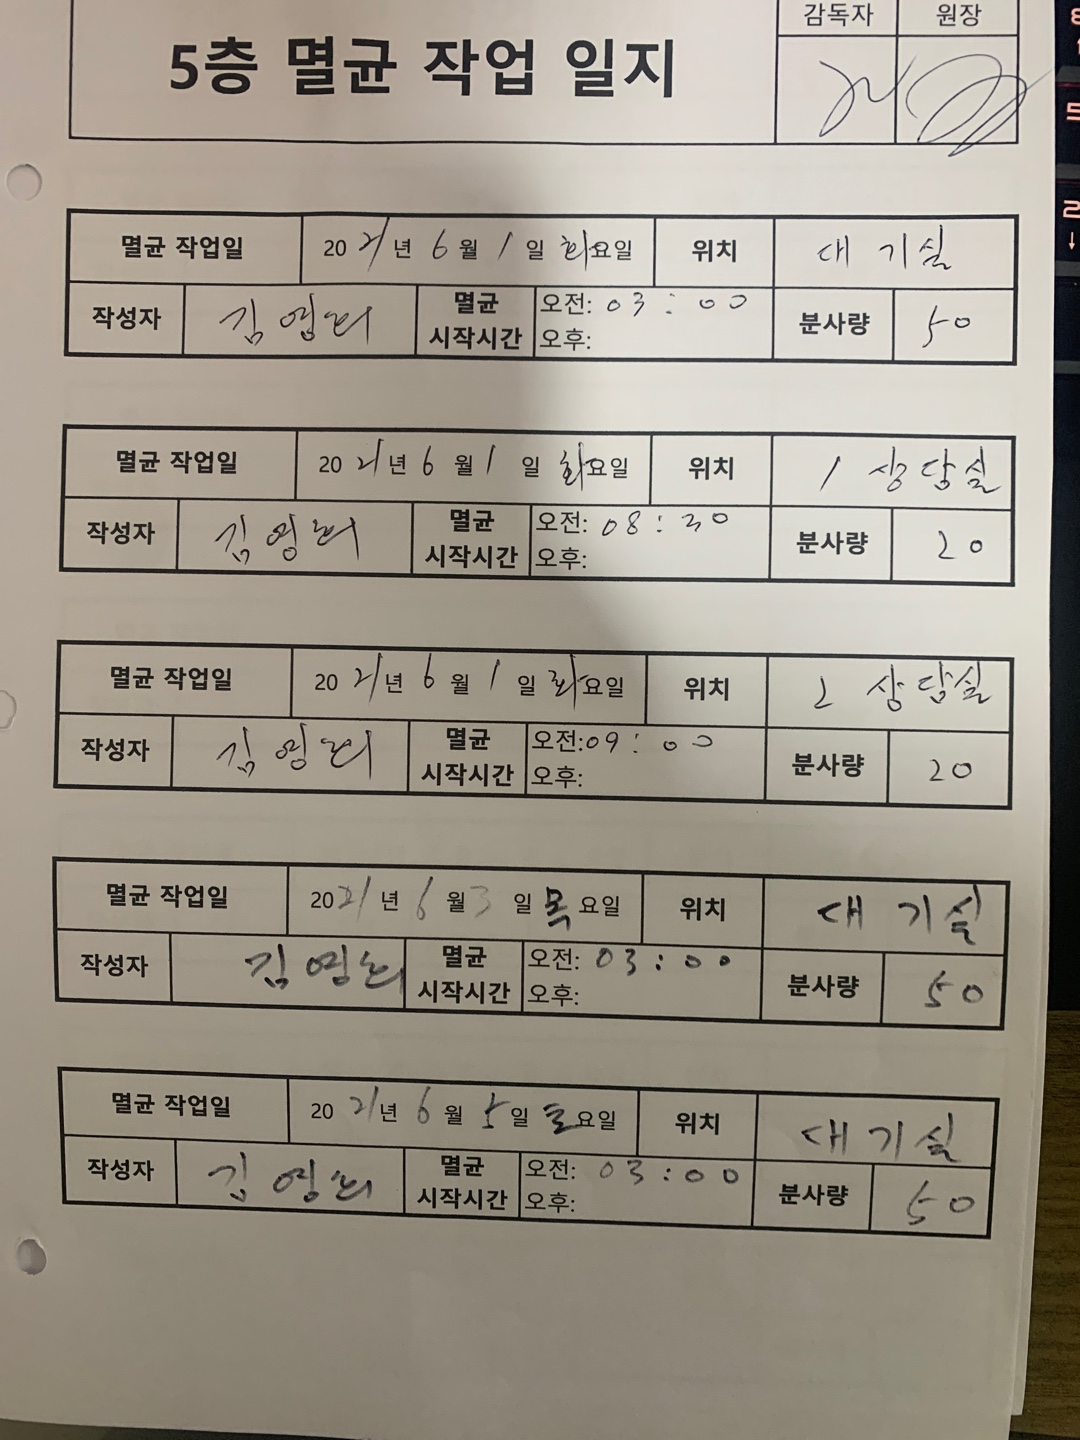 감독자 원장
5층 멸균 작업 일지
멸균 작업일 2021년 6월 1일 화요일 위치 대기실
작성자 김영희 멸균 시작시간 오전: 03:00 분사량 50
오후:
멸균 작업일 2021년 6월 1일 화요일 위치 1 상담실
작성자 김영희 멸균 시작시간 오전: 08:30 분사량 20
오후:
멸균 작업일 2021년 6월 1일 화요일 위치 2 상담실
작성자 김영희 멸균 시작시간 오전:09:00 분사량 20
오후:
멸균 작업일 2021년 6월 3일 목요일 위치 대기실
작성자 김영희 멸균 시작시간 오전: 03:00 분사량 50
오후:
멸균 작업일 2021년 6월 5일 토요일 위치 대기실
작성자 김영희 멸균 시작시간 오전: 03:00 분사량 50
오후: